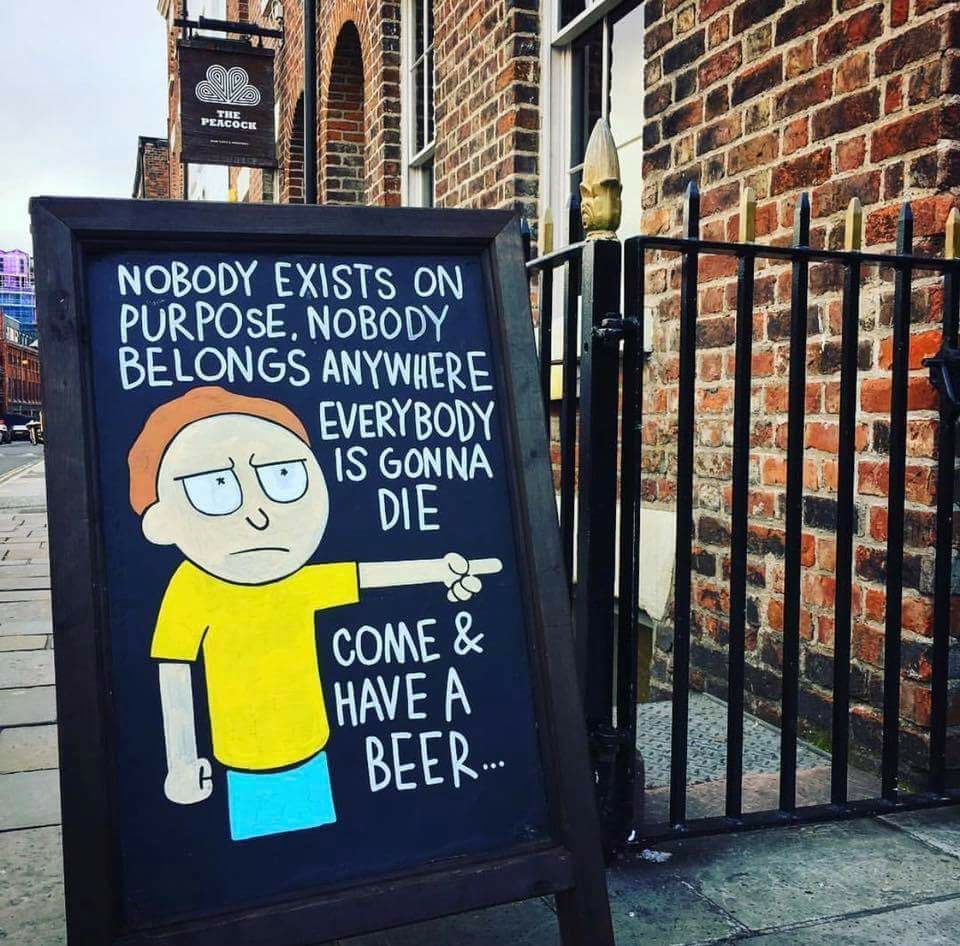 THE
PEACOCK
NOBODY EXISTS ON
PURPOSE. NOBODY
BELONGS ANYWHERE
EVERYBODY
IS GONNA
DIE
COME &
HAVE A
BEER...